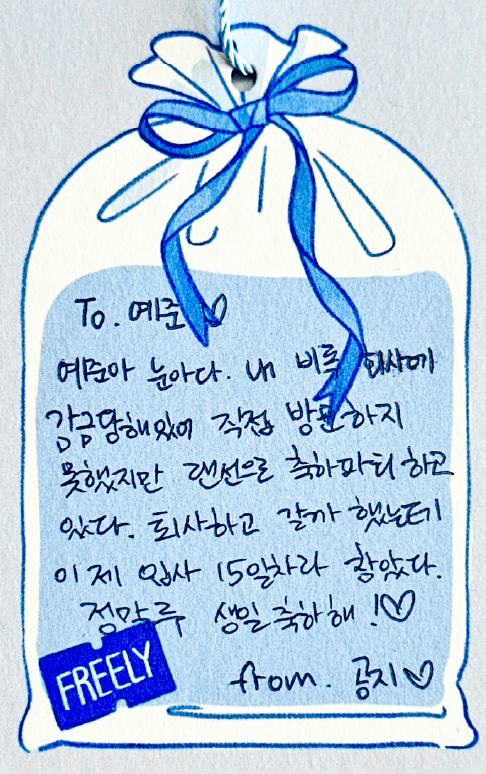 To. 예준 ♡
예준아 눈아다. 내 비록 회사에
감금당해있어 직접 방문하지
못했지만 랜선으로 축하파티하고
있다. 퇴사하고 갈까 했는데
이제 입사 15일차라 참았다.
정말루 생일축하해!♡
FREELY
from. 공지♡